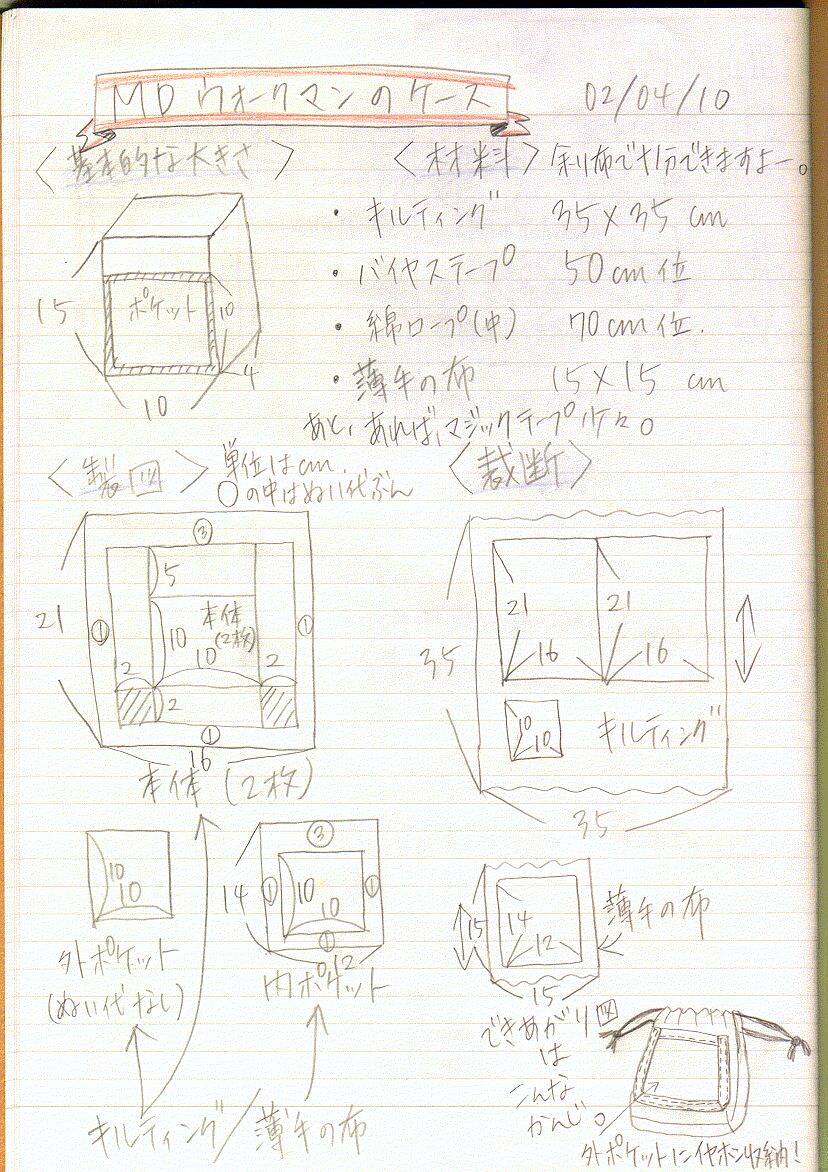 MDウォークマンのケース 02/04/10
〈基本的な大きさ〉
ポケット
15
10
4
10
〈材料〉余り布で十分できますよー。
・キルティング 35×35 cm
・バイヤステープ 50cm位
・綿ロープ(中) 70cm位.
・薄手の布 15×15 cm
あと、あれば、マジックテープ少々。
〈製図〉単位はcm.
○の中はぬい代ぶん
③
5
本体
(2枚)
10
10
21
①
①
2
2
2
①
16
本体(2枚)
〈裁断〉
21
21
16
16
35
10
10
キルティング
35
10
10
外ポケット
(ぬい代なし)
③
14
①
10
①
10
①
12
内ポケット
キルティング/薄手の布
15
14
12
15
薄手の布
できあがり図
は
こんな
かんじ。
外ポケットにイヤホン収納!